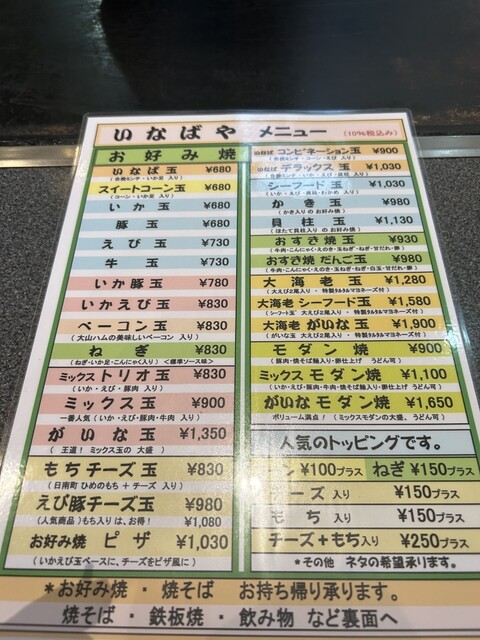 いなばや メニュー (10%税込み)
お好み焼
いなば玉 ¥680
(合挽ミンチ・いか天 入り)
スイートコーン玉 ¥680
(コーン・いか天 入り)
いか玉 ¥680
豚玉 ¥680
えび玉 ¥730
牛玉 ¥730
いか豚玉 ¥780
いかえび玉 ¥830
ベーコン玉 ¥830
(大山ハムの美味しいベーコン 入り)
ねぎ ¥830
(ねぎ・いか足・こんにゃく入り) <標準ソース味>
ミックストリオ玉 ¥830
(いか・えび・豚肉 入り)
ミックス玉 ¥900
一番人気 (いか・えび・豚肉・牛肉 入り)
がいな玉 ¥1,350
( 王道! ミックス玉の 大盛 )
もちチーズ玉 ¥830
(日南町 ひめのもち + チーズ 入り)
えび豚チーズ玉 ¥980
(人気商品)もち入りは、お得! ¥1,080
お好み焼 ピザ ¥1,030
(いかえび玉ベースに、チーズをピザ風に)
コンビネーション玉 ¥900
(合挽ミンチ・コーン・えび 入り)
デラックス玉 ¥1,030
シーフード玉 ¥1,030
かき玉 ¥980
(かき入り の お好み焼)
貝柱玉 ¥1,130
(ほたて貝柱入り の お好み焼)
おすき焼玉 ¥930
(牛肉・こんにゃく・えのき・玉ねぎ・ねぎ・甘だれ・卵)
おすき焼だんご玉 ¥980
(牛肉・こんにゃく・えのき・玉ねぎ・ねぎ・白玉・甘だれ・卵)
大海老玉 ¥1,280
(大えび2尾入り ・ 特製タルタルマヨネーズ付)
大海老シーフード玉 ¥1,580
(シーフード玉 大えび2尾入り ・ 特製タルタルマヨネーズ付)
大海老がいな玉 ¥1,900
(がいな玉 大えび2尾入り ・ 特製タルタルマヨネーズ付)
モダン焼 ¥900
(豚肉・焼そば麺入り・卵仕上げ うどん可)
ミックスモダン焼 ¥1,100
(いか・えび・豚肉・牛肉・焼そば麺入り・卵仕上げ うどん可)
がいなモダン焼 ¥1,650
ボリューム満点! (ミックスモダンの大盛、うどん可)
人気のトッピングです。
ン ¥100プラス ねぎ ¥150プラス
ーズ 入り ¥150プラス
もち 入り ¥150プラス
チーズ+もち入り ¥250プラス
*その他 ネタの希望承ります。
*お好み焼・焼そば お持ち帰り承ります。
焼そば・鉄板焼・飲み物 など裏面へ